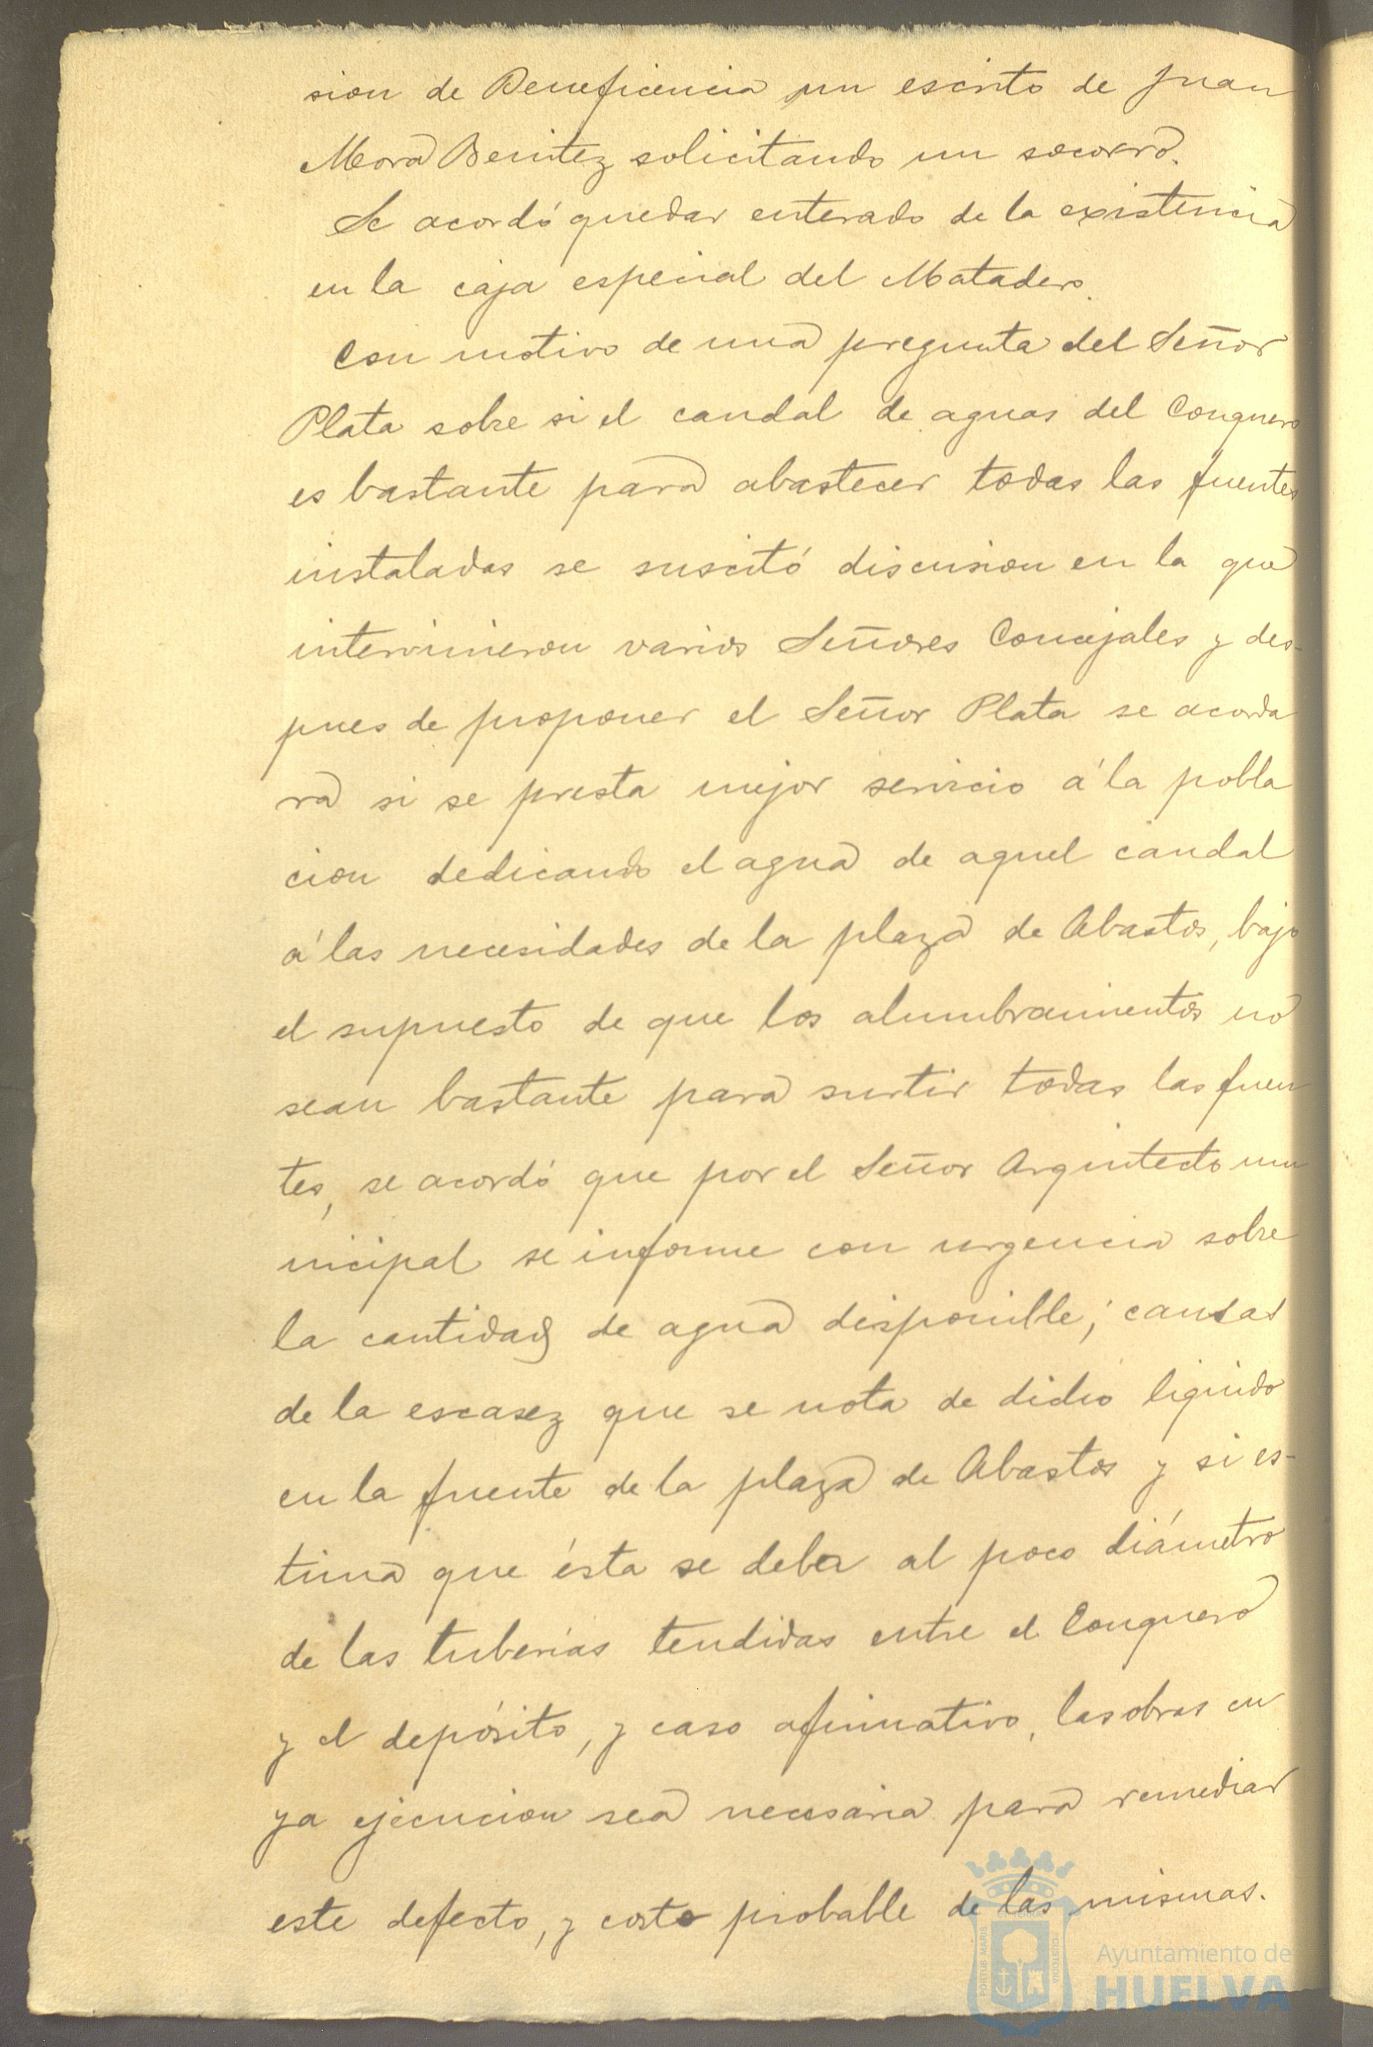 sion de Beneficencia un escrito de Juan
Mora Benitez solicitando un socorro.
Se acordó quedar enterado de la existencia
en la caja especial del Matadero.
Con motivo de una pregunta del Señor
Plata sobre si el caudal de aguas del Conquero
es bastante para abastecer todas las fuentes
instaladas se suscitó discusion en la que
intervinieron varios Señores Concejales y des-
pues de proponer el Señor Plata se acorda
ra si se presta mejor servicio á la pobla
cion dedicando el agua de aquel caudal
á las necesidades de la plaza de Abastos, bajo
el supuesto de que los alumbramientos no
sean bastante para surtir todas las fuen
tes, se acordó que por el Señor Arquitecto mu
nicipal se informe con urgencia sobre
la cantidad de agua disponible; causas
de la escasez que se nota de dicho liquido
en la fuente de la plaza de Abastos y si es-
tima que ésta se deba al poco diámetro
de las tuberías tendidas entre el Conquero
y el depósito, y caso afirmativo, las obras cu
ya ejecucion sea necesaria para remediar
este defecto, y costo probable de las mismas.
PORTUS MARIS
ET TERRAE
CUSTODIA
Ayuntamiento de
HUELVA